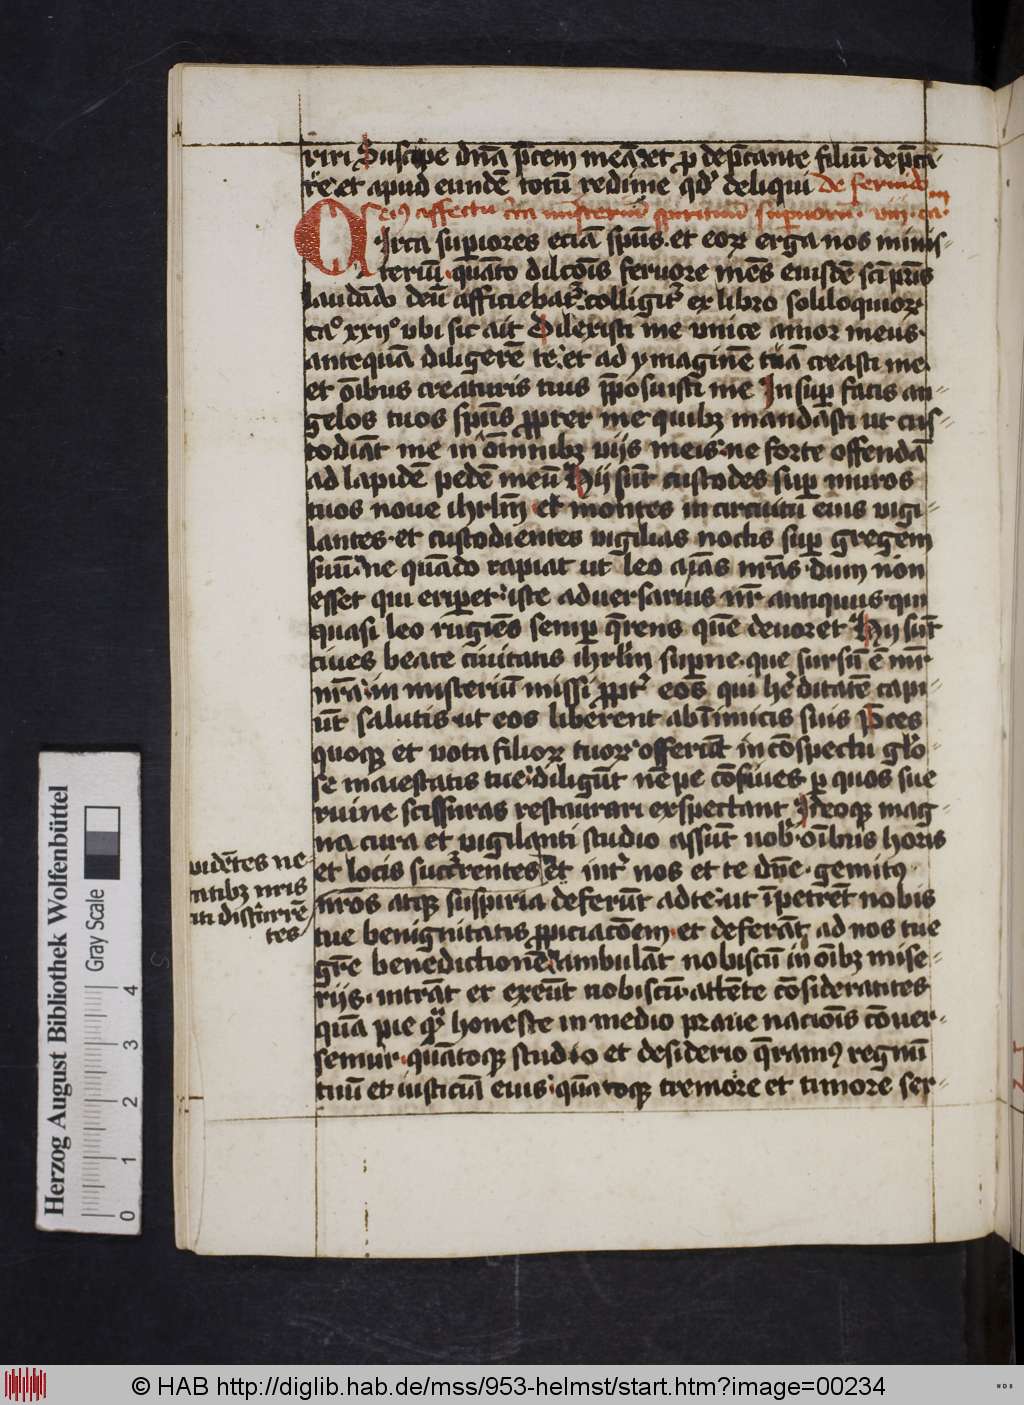 riri Suscipe dn̄a p̄cem meā et p̱ dep̄cante filiū dep̄cā-
re et apud eundē totū redime qd' deliqui de feruido
eiꝰ affectu c̄ca mīsteriū spirituū supioruꝫ viij ca. m
Circa supiores eciā spūs et eoꝝ erga nos minis-
teriū quāto dilcōis feruore mēs eiusdē sci pr̄is
laudādo deū afficiebat' colligit' ex libro soliloquioꝝ
caº xxijº vbi sic ait Dilexisti me vnice amor meus
antequā diligerē te et ad ymaginē tuā creasti me
et oībus creaturis tuis p̄posuisti me Insup facis an-
gelos tuos spūs ꝓpter me quibꝫ mandasti ut cus-
todiāt me in om̄nibꝫ vijs meis ne forte offendā
ad lapidē pedē meū Hij sūt custodes sup muros
tuos noue ihrlm̄ et montes in circuitu eius vigi-
lantes et custodientes vigilias noctis sup gregem
suū ne quādo rapiat ut leo aīas nr̄as dum non
esset qui eriꝑet iste aduersarius nr̄ antiquus qui
quasi leo rugiēs semꝑ q̄rens quē deuoret Hij sūt
ciues beate ciuitatis ihrlm̄ suꝑne que sursū ē mr̄
nr̄a in misteriū missi ꝓpt' eos qui h'ditatē capi-
ūt salutis ut eos liberent ab īimicis suis P̄ces
quoqꝫ et vota filioꝝ tuoꝝ offerūt in cōspectu glo-
se maiestatis tue diligūt nēpe cōciues ꝑ quos sue
ruine scissuras restaurari exspectant Ideoqꝫ mag-
na cura et vigilanti studio assūt nob' oībus horis
et locis succ'rentes et int' nos et te dn̄e gemitꝰ
nr̄os atqꝫ suspiria deferūt ad te ut īpetrēt nobis
tue benignitatis ꝓpiciacōem et deferāt ad nos tue
gr̄e benedictionē ambulāt nobiscū in oībꝫ mise-
rijs intrāt et exeūt nobiscū attēte cōsiderantes
quā pie qꝫ honeste in medio praue nacōis cōuer-
semur quātoqꝫ studio et desiderio q̄ramꝰ regnū
tuū et iusticiā eius quātoqꝫ tremore et timore ser-
uidētes ne-
tatibꝫ nr̄is
ati discurrē
tes
Herzog August Bibliothek Wolfenbüttel
Gray Scale
0 1 2 3 4
© HAB http://diglib.hab.de/mss/953-helmst/start.htm?image=00234